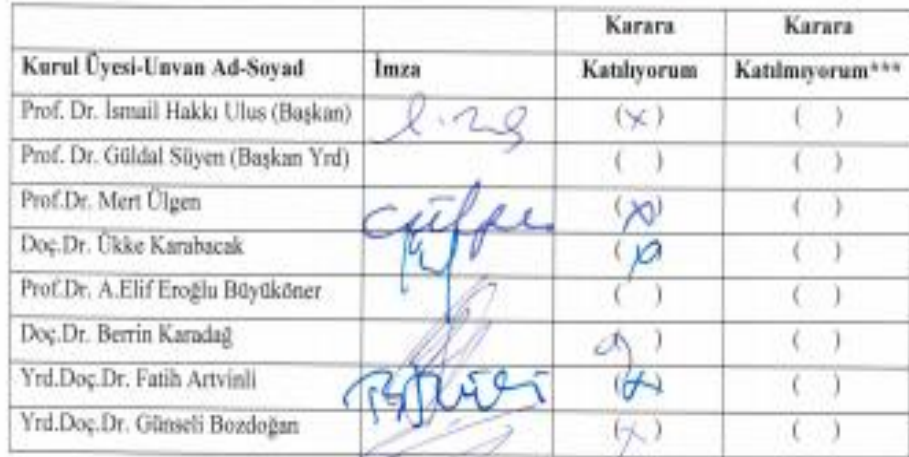 Karara Karara
Kurul Üyesi-Unvan Ad-Soyad İmza Katılıyorum Katılmıyorum***
Prof. Dr. İsmail Hakkı Ulus (Başkan) (x) ( )
Prof. Dr. Güldal Süyen (Başkan Yrd) ( ) ( )
Prof.Dr. Mert Ülgen (x) ( )
Doç.Dr. Ükke Karabacak (x) ( )
Prof.Dr. A.Elif Eroğlu Büyüköner ( ) ( )
Doç.Dr. Berrin Karadağ ( ) ( )
Yrd.Doç.Dr. Fatih Artvinli (x) ( )
Yrd.Doç.Dr. Günseli Bozdoğan (x) ( )